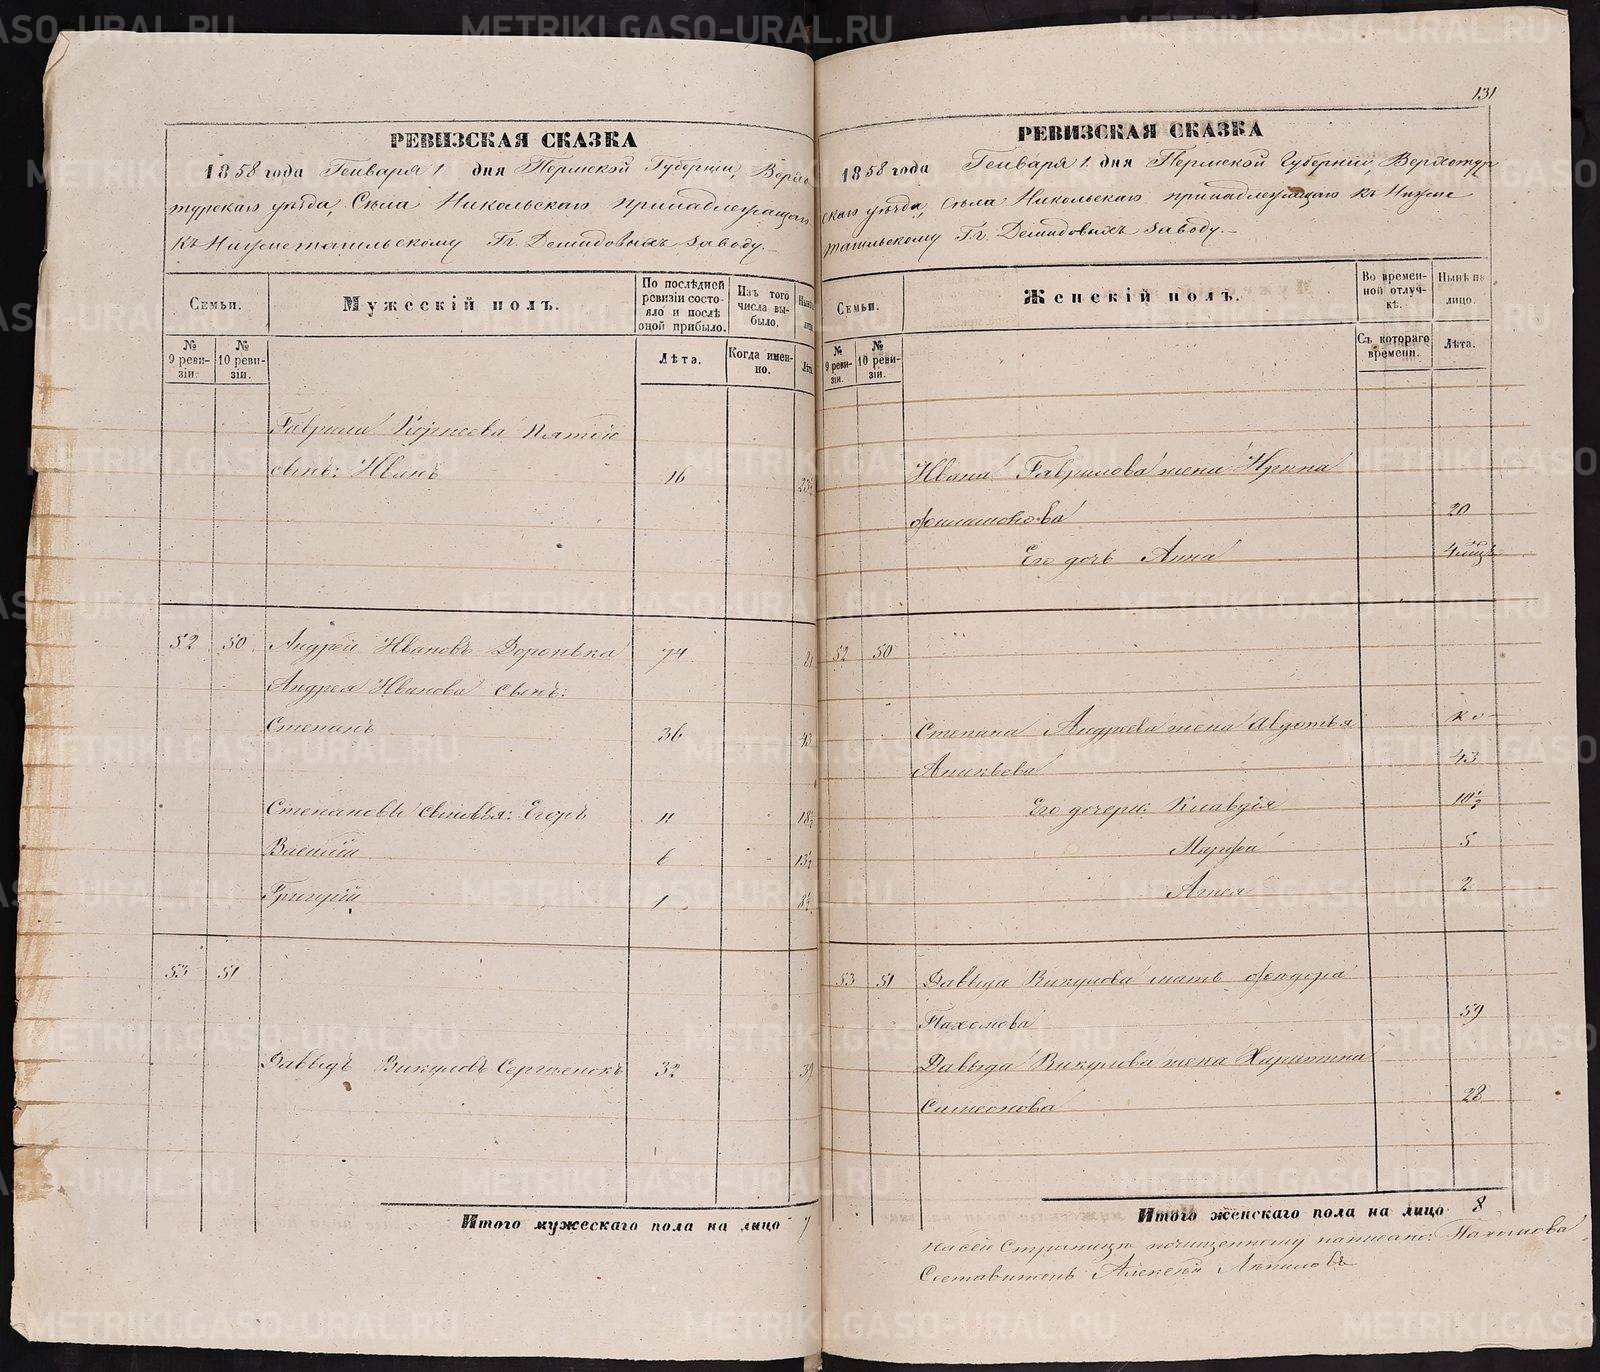 131
РЕВИЗСКАЯ СКАЗКА
1858 года Генваря 1 дня Пермской Губернiи, Верхо
турскаго уѣзда, Села Никольскаго принадлежащаго
къ Нижнетагильскому Гг. Демидовыхъ заводу.
Семьи.
Мужескiй полъ.
По послѣдней ревизiи состояло и послѣ оной прибыло.
Изъ того числа выбыло.
№ 9 ревизiи.
№ 10 ревизiи.
Лѣта.
Когда именно.
Лѣта.
Гаврила Корнеева
сынъ: Иванъ 16 23½
52 50 Андрей Ивановъ 74 81
Андрея Иванова сынъ:
Степанъ 36 43
Степановы сыновья: Егоръ 11 18½
Василiй 6 13½
Григорiй 1 8½
53 51
Давыдъ Викуловъ Сергѣенокъ 32 39
Итого мужескаго пола на лицо 7
РЕВИЗСКАЯ СКАЗКА
1858 года Генваря 1 дня Пермской Губернiи, Верхотур
скаго уѣзда, Села Никольскаго принадлежащаго къ Нижне
тагильскому Гг. Демидовыхъ заводу.
Семьи.
Женскiй полъ.
Во временной отлучкѣ.
Нынѣ на лицо.
№ 9 ревизiи.
№ 10 ревизiи.
Съ котораго времени.
Лѣта.
Ивана Гаврилова жена Ирина
Филимонова 20
Его дочь Анна
52 50
Степана Андреева жена Авдотья
Аникѣева 43
Его дочери: Клавдiя 10½
Марфа 5
Агнея 2
53 51 Давыда Викулова мать Федора
Пахомова 59
Давыда Викулова жена Харитина
Симеонова 28
Итого женскаго пола на лицо 8
На сей Страницѣ почищенному написано: Пахомова
Составитель Алексѣй
METRIKI.GASO-URAL.RU